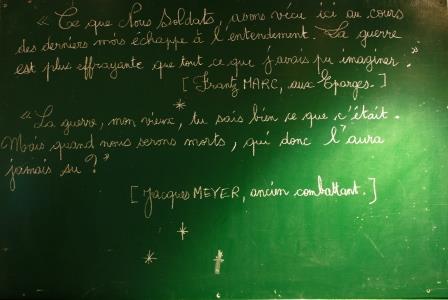 « Ce que Nous Soldats, avons vécu ici au cours
des derniers mois échappe à l'entendement. La guerre
est plus effrayante que tout ce que j'avais pu imaginer. »
[Frantz MARC, aux Eparges.]
*
« La guerre, mon vieux, tu sais bien ce que c'était.
Mais quand nous serons morts, qui donc l'aura
jamais su ? »
[Jacques MEYER, ancien combattant.]
*
* †